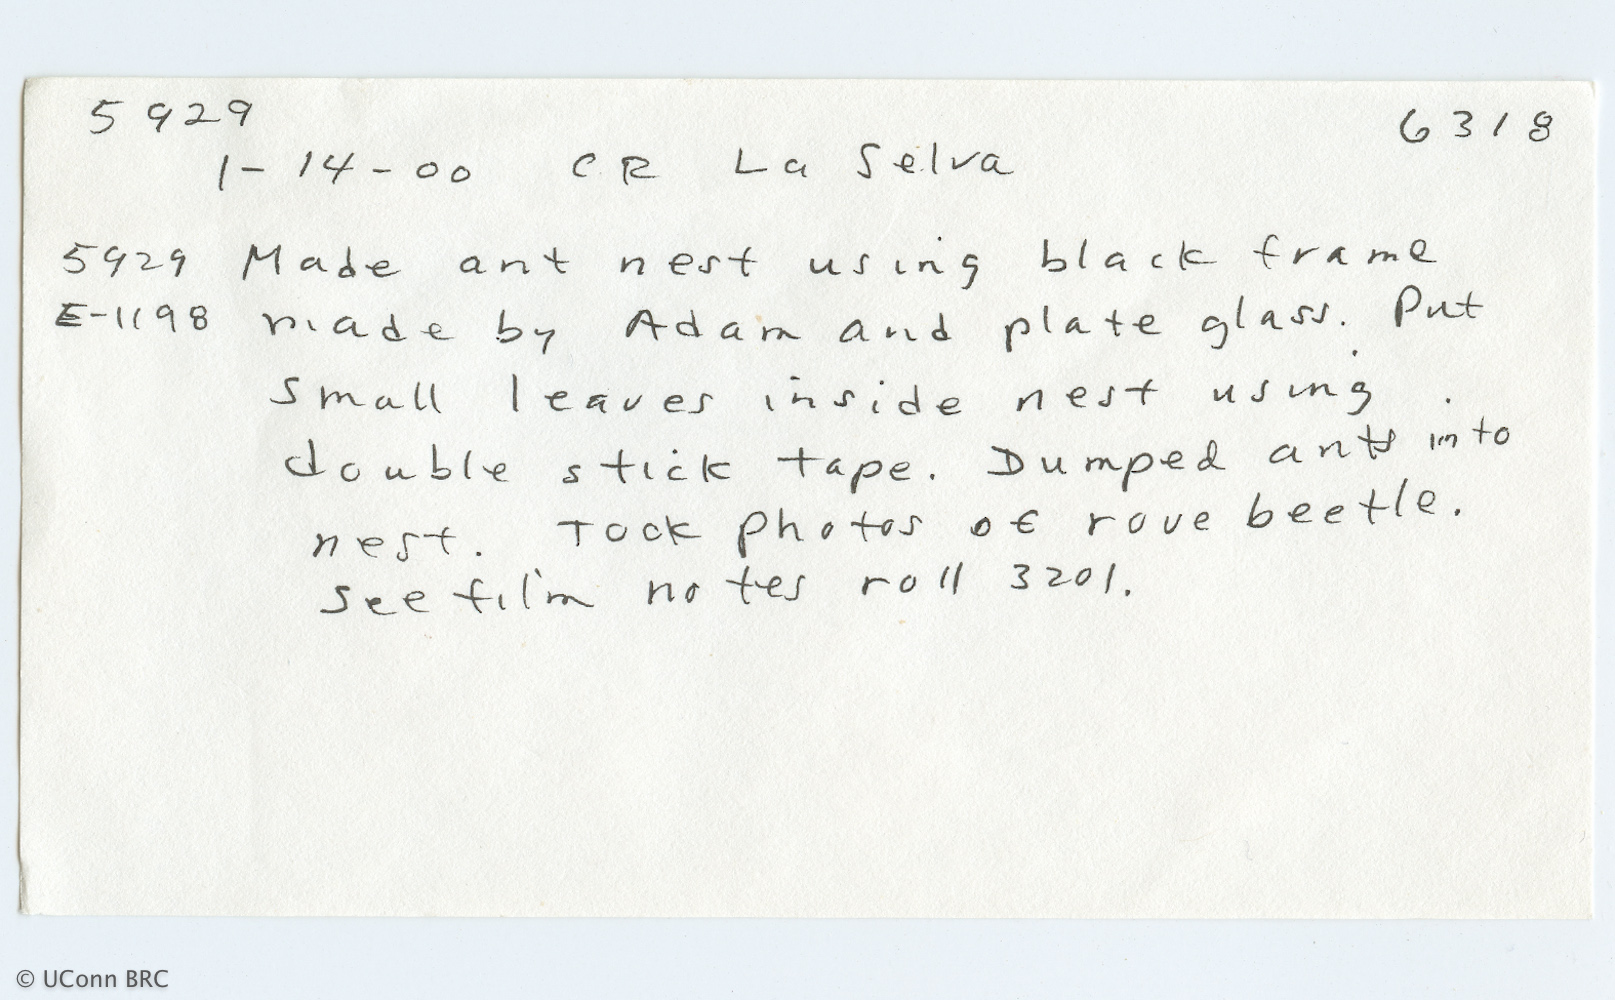 5929 6318
1-14-00 CR La Selva
5929 Made ant nest using black frame
E-1198 made by Adam and plate glass. Put
small leaves inside nest using
double stick tape. Dumped ants into
nest. Took photos of rove beetle.
See film notes roll 3201.
© UConn BRC